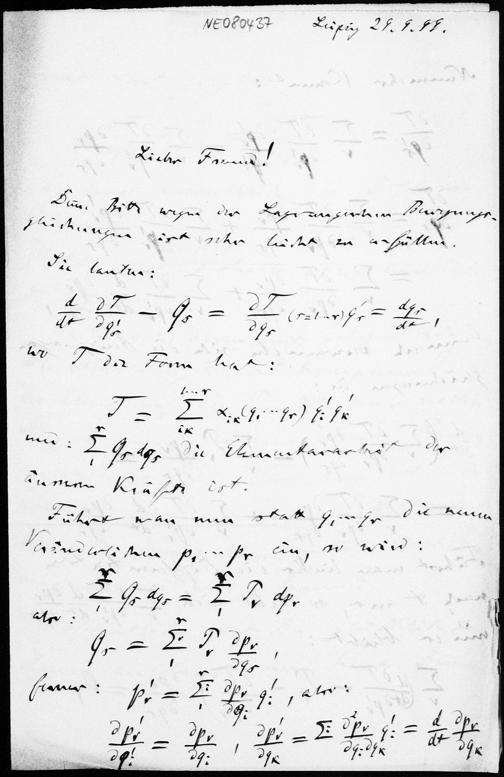 NE080437
Leipzig 29.9.99.
Lieber Freund!
Deine Bitte wegen der Lagrangeschen Bewegungs-
gleichungen ist sehr leicht zu erfüllen.
Sie lauten:
d/dt ∂T/∂q's − Qs = ∂T/∂qs (s=1…r) q's = dqs/dt,
wo T die Form hat:
T = Σ_{ik}^{1…r} α_{ik}(q1…qr) q'i q'k
und: Σ_1^r Qs dqs die Elementararbeit der
äussern Kräfte ist.
Führt man nun statt q1…qr die neuen
Veränderlichen p1…pr ein, so wird:
Σ_1^r Qs dqs = Σ_1^r Pν dpν
also:
Qs = Σ_1^r Pν ∂pν/∂qs,
ferner: p'ν = Σ_1^r ∂pν/∂qi q'i, also:
∂p'ν/∂q'i = ∂pν/∂qi, ∂p'ν/∂qk = Σi ∂²pν/∂qi∂qk q'i = d/dt ∂pν/∂qk